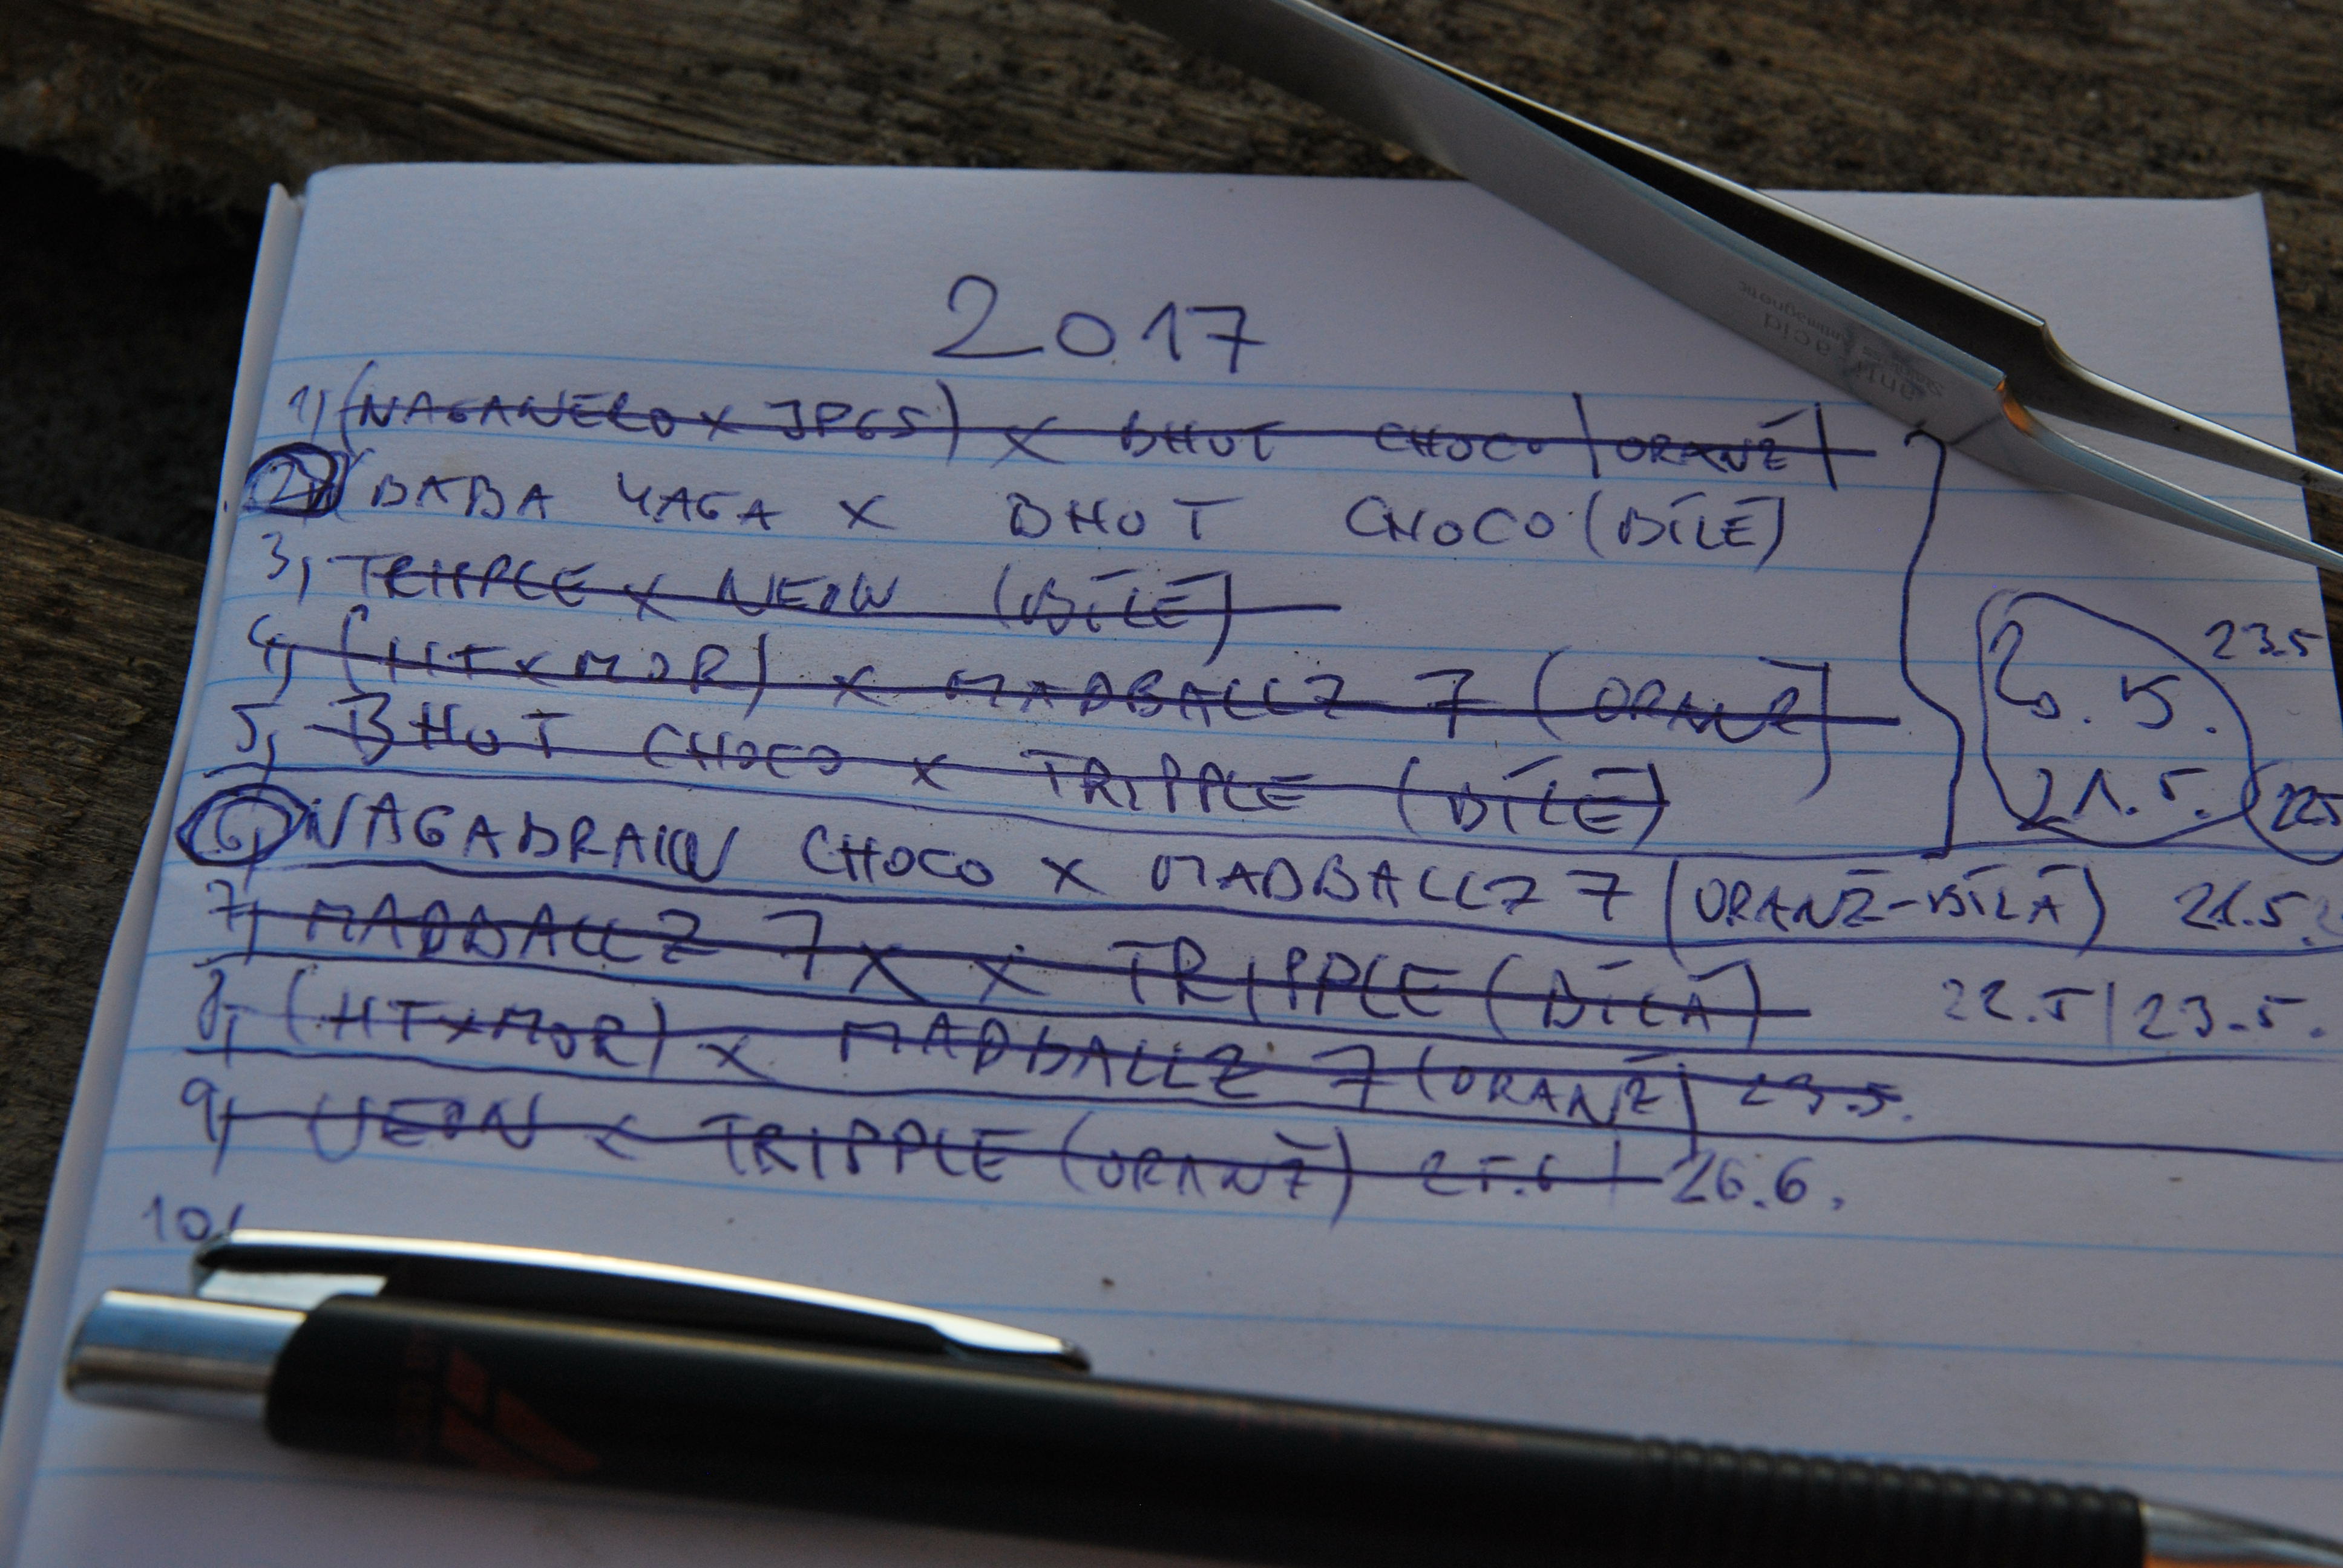 2017
1, (NAGANERO X JPGS) X BHUT CHOCO (ORANŽ)
2, BABA YAGA X BHUT CHOCO (BÍLÉ)
3, TRIPPLE X NEON (BÍLÉ)
23.5
4, (HT X MOR) X MADBALLZ 7 (ORANŽ)
20.5.
5, BHUT CHOCO X TRIPPLE (BÍLÉ)
21.5. 22.5
6, NAGABRAIN CHOCO X MADBALLZ 7 (ORANŽ-BÍLÁ) 21.5.
7, MADBALLZ 7 X X TRIPPLE (BÍLÁ) 22.5 / 23.5.
8, (HT X MOR) X MADBALLZ 7 (ORANŽ) 23.5.
9, NEON X TRIPPLE (ORANŽ) 25.6 / 26.6.
10,
anti acid
antimagnetic